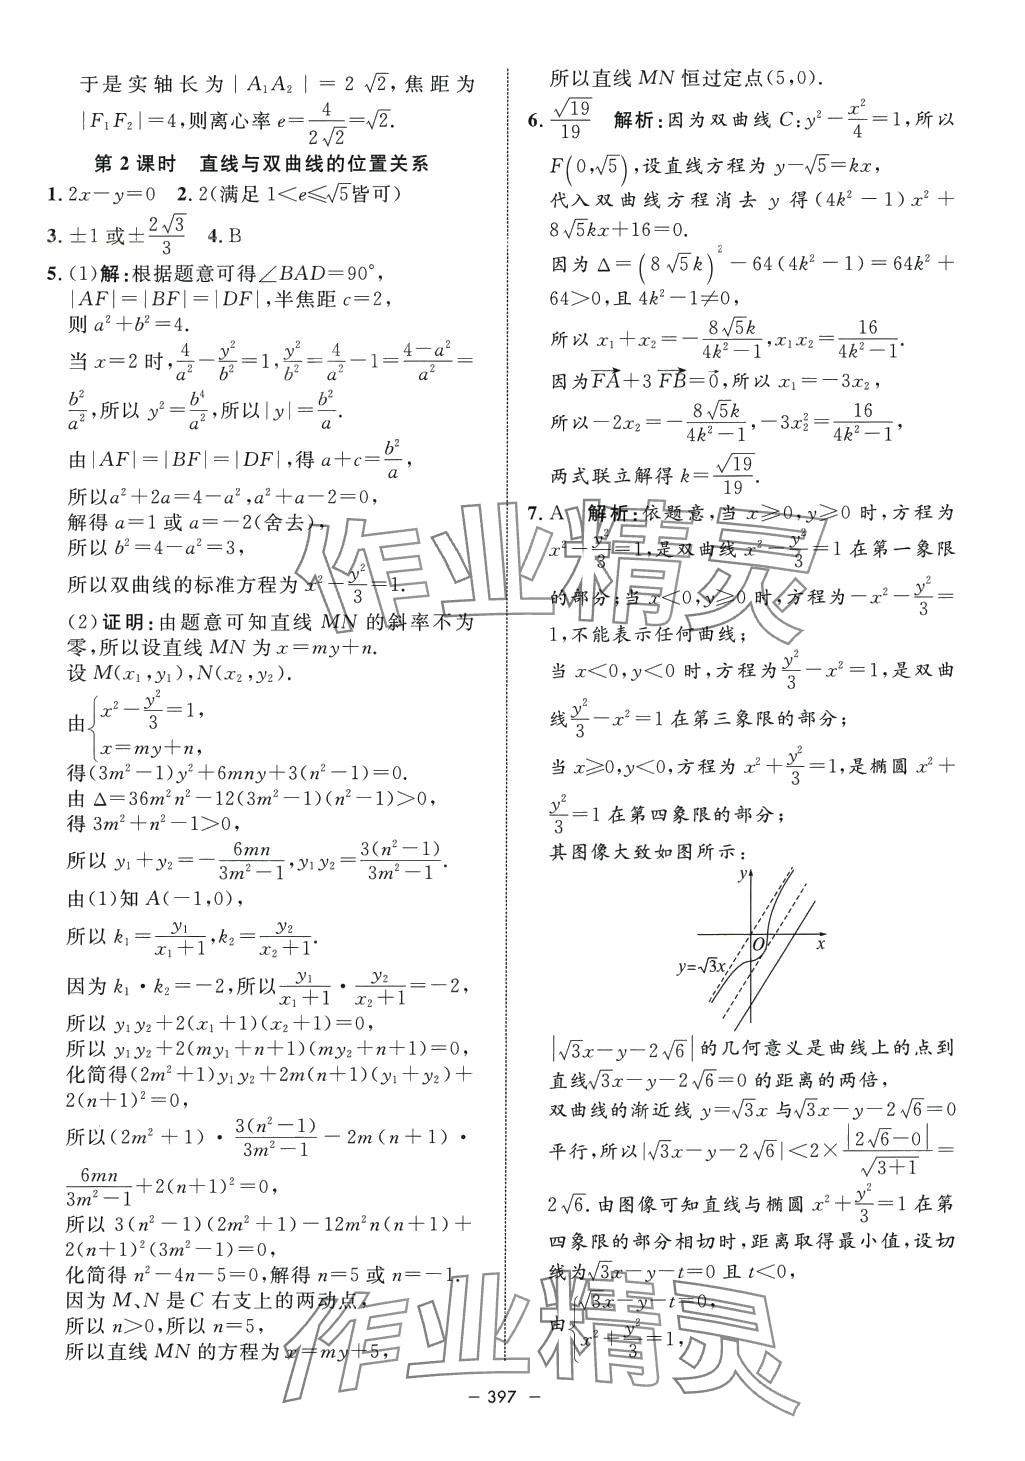 于是实轴长为|A₁A₂|=2√2,焦距为
|F₁F₂|=4,则离心率e=4/(2√2)=√2.
第2课时 直线与双曲线的位置关系
1. 2x-y=0 2. 2(满足1<e≤√5皆可)
3. ±1或±2√3/3 4. B
5. (1)解:根据题意可得∠BAD=90°,
|AF|=|BF|=|DF|,半焦距c=2,
则a²+b²=4.
当x=2时,4/a²-y²/b²=1,y²/b²=4/a²-1=(4-a²)/a²=
b²/a²,所以y²=b⁴/a²,所以|y|=b²/a.
由|AF|=|BF|=|DF|,得a+c=b²/a,
所以a²+2a=4-a²,a²+a-2=0,
解得a=1或a=-2(舍去),
所以b²=4-a²=3,
所以双曲线的标准方程为x²-y²/3=1.
(2)证明:由题意可知直线MN的斜率不为
零,所以设直线MN为x=my+n.
设M(x₁,y₁),N(x₂,y₂).
由{x²-y²/3=1,
x=my+n,
得(3m²-1)y²+6mny+3(n²-1)=0.
由Δ=36m²n²-12(3m²-1)(n²-1)>0,
得3m²+n²-1>0,
所以y₁+y₂=-6mn/(3m²-1),y₁y₂=3(n²-1)/(3m²-1).
由(1)知A(-1,0),
所以k₁=y₁/(x₁+1),k₂=y₂/(x₂+1).
因为k₁·k₂=-2,所以y₁/(x₁+1)·y₂/(x₂+1)=-2,
所以y₁y₂+2(x₁+1)(x₂+1)=0,
所以y₁y₂+2(my₁+n+1)(my₂+n+1)=0,
化简得(2m²+1)y₁y₂+2m(n+1)(y₁+y₂)+
2(n+1)²=0,
所以(2m²+1)·3(n²-1)/(3m²-1)-2m(n+1)·
6mn/(3m²-1)+2(n+1)²=0,
所以3(n²-1)(2m²+1)-12m²n(n+1)+
2(n+1)²(3m²-1)=0,
化简得n²-4n-5=0,解得n=5或n=-1.
因为M、N是C右支上的两动点,
所以n>0,所以n=5,
所以直线MN的方程为x=my+5,
所以直线MN恒过定点(5,0).
6. √19/19 解析:因为双曲线C:y²-x²/4=1,所以
F(0,√5),设直线方程为y-√5=kx,
代入双曲线方程消去y得(4k²-1)x²+
8√5kx+16=0.
因为Δ=(8√5k)²-64(4k²-1)=64k²+
64>0,且4k²-1≠0,
所以x₁+x₂=-8√5k/(4k²-1),x₁x₂=16/(4k²-1).
因为FA→+3FB→=0→,所以x₁=-3x₂,
所以-2x₂=-8√5k/(4k²-1),-3x₂²=16/(4k²-1),
两式联立解得k=√19/19.
7. A 解析:依题意,当x≥0,y≥0时,方程为
x²-y²/3=1,是双曲线x²-y²/3=1在第一象限
的部分;当x<0,y≥0时,方程为-x²-y²/3=
1,不能表示任何曲线;
当x<0,y<0时,方程为y²/3-x²=1,是双曲
线y²/3-x²=1在第三象限的部分;
当x≥0,y<0,方程为x²+y²/3=1,是椭圆x²+
y²/3=1在第四象限的部分;
其图像大致如图所示:
y
O
x
y=√3x
|√3x-y-2√6|的几何意义是曲线上的点到
直线√3x-y-2√6=0的距离的两倍,
双曲线的渐近线y=√3x与√3x-y-2√6=0
平行,所以|√3x-y-2√6|<2×|2√6-0|/√(3+1)=
2√6.由图像可知直线与椭圆x²+y²/3=1在第
四象限的部分相切时,距离取得最小值,设切
线为√3x-y-t=0且t<0,
由{√3x-y-t=0,
x²+y²/3=1,
- 397 -
作业精灵
作业精灵